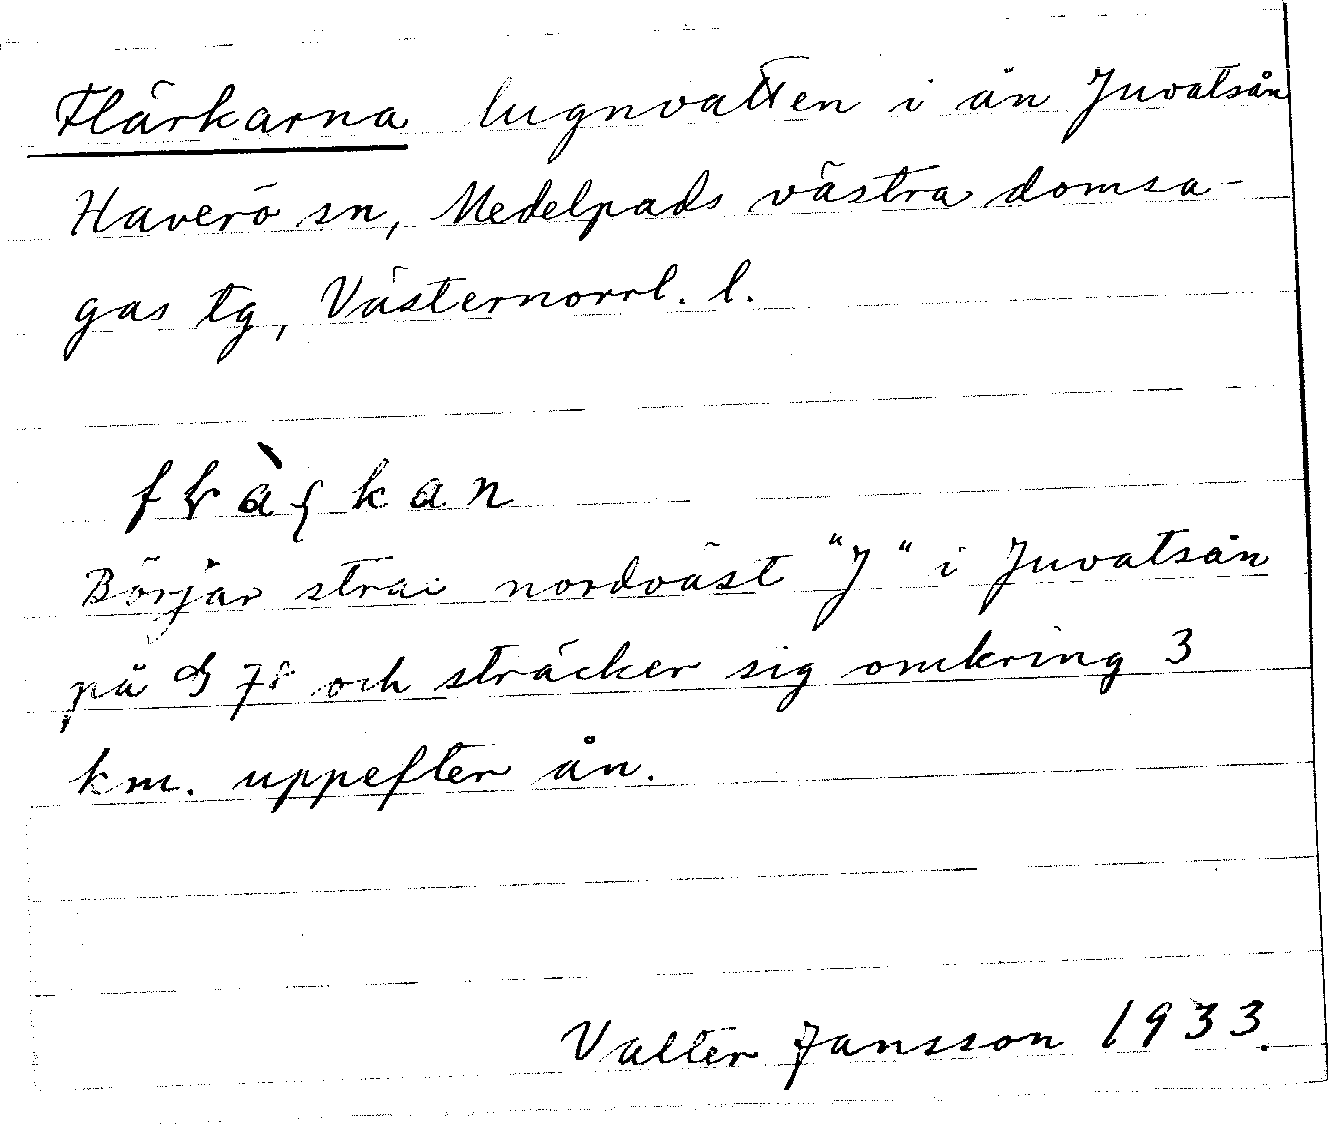 Flärkarna lugnvatten i ån Juvatsån
Haverö sn, Medelpads västra domsa-
gas tg, Västernorrl. l.
Börjar strax nordväst "J" i Juvatsån
på 78 och sträcker sig omkring 3
km. uppefter ån.
Valter Jansson 1933.